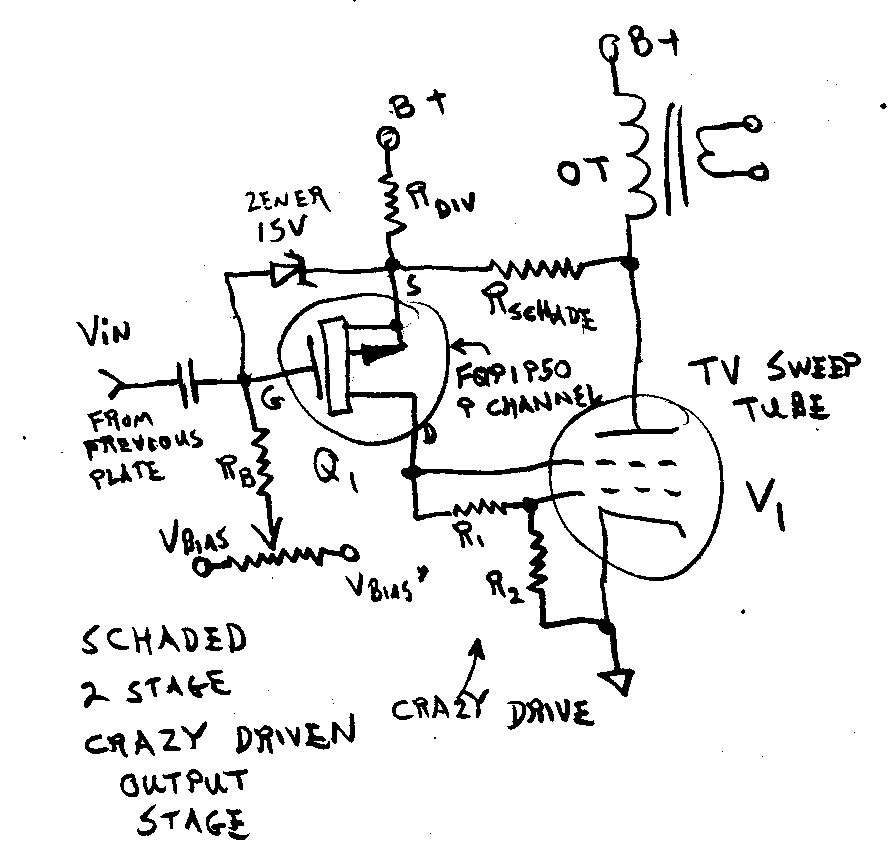 B+
B+
RDIV
OT
ZENER
15V
S
RSCHADE
VIN
FQP1P50
P CHANNEL
TV SWEEP
TUBE
G
D
FROM
PREVIOUS
PLATE
RB
Q1
V1
R1
VBIAS
VBIAS'
R2
SCHADED
2 STAGE
CRAZY DRIVEN
OUTPUT
STAGE
CRAZY DRIVE